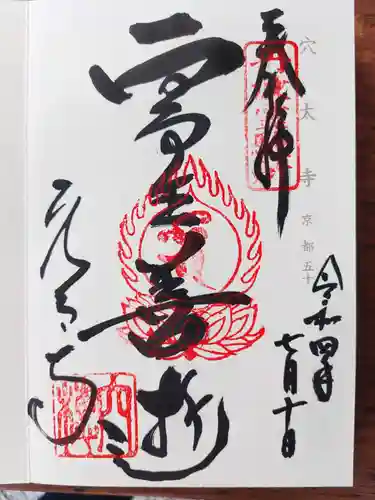 奉拝
穴太寺 京都五十
令和四年
七月十日
醫王善逝
穴太寺